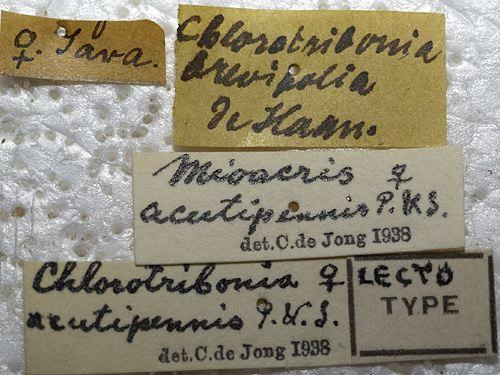 ♀. Java.
Chlorotribonia
brevifolia
De Haan.
Mioacris ♀
acutipennis P.&S.
det.C.de Jong 1938
Chlorotribonia ♀
acutipennis P.&S.
det.C.de Jong 1938
LECTO
TYPE